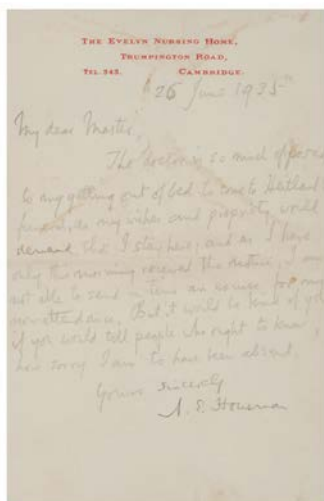 THE EVELYN NURSING HOME,
TRUMPINGTON ROAD,
TEL. 343. CAMBRIDGE.
26 June 1935
My dear Master,
The doctor is so much opposed
to my getting out of bed to come to
funeral, as my wishes and propriety would
demand that I stay here, and as I have
only this morning received the notice, I am
not able to send in time an excuse for my
non-attendance. But it would be kind of you
if you would tell people who ought to know,
how sorry I am to have been absent.
Yours sincerely
A. E. Housman